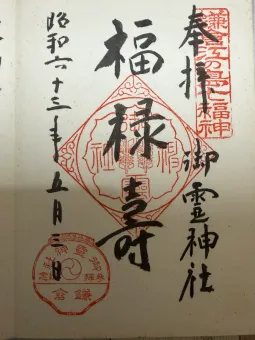 鎌倉江の島七福神
奉拝
御霊神社
福禄寿
昭和六十三年五月三日
鎌倉